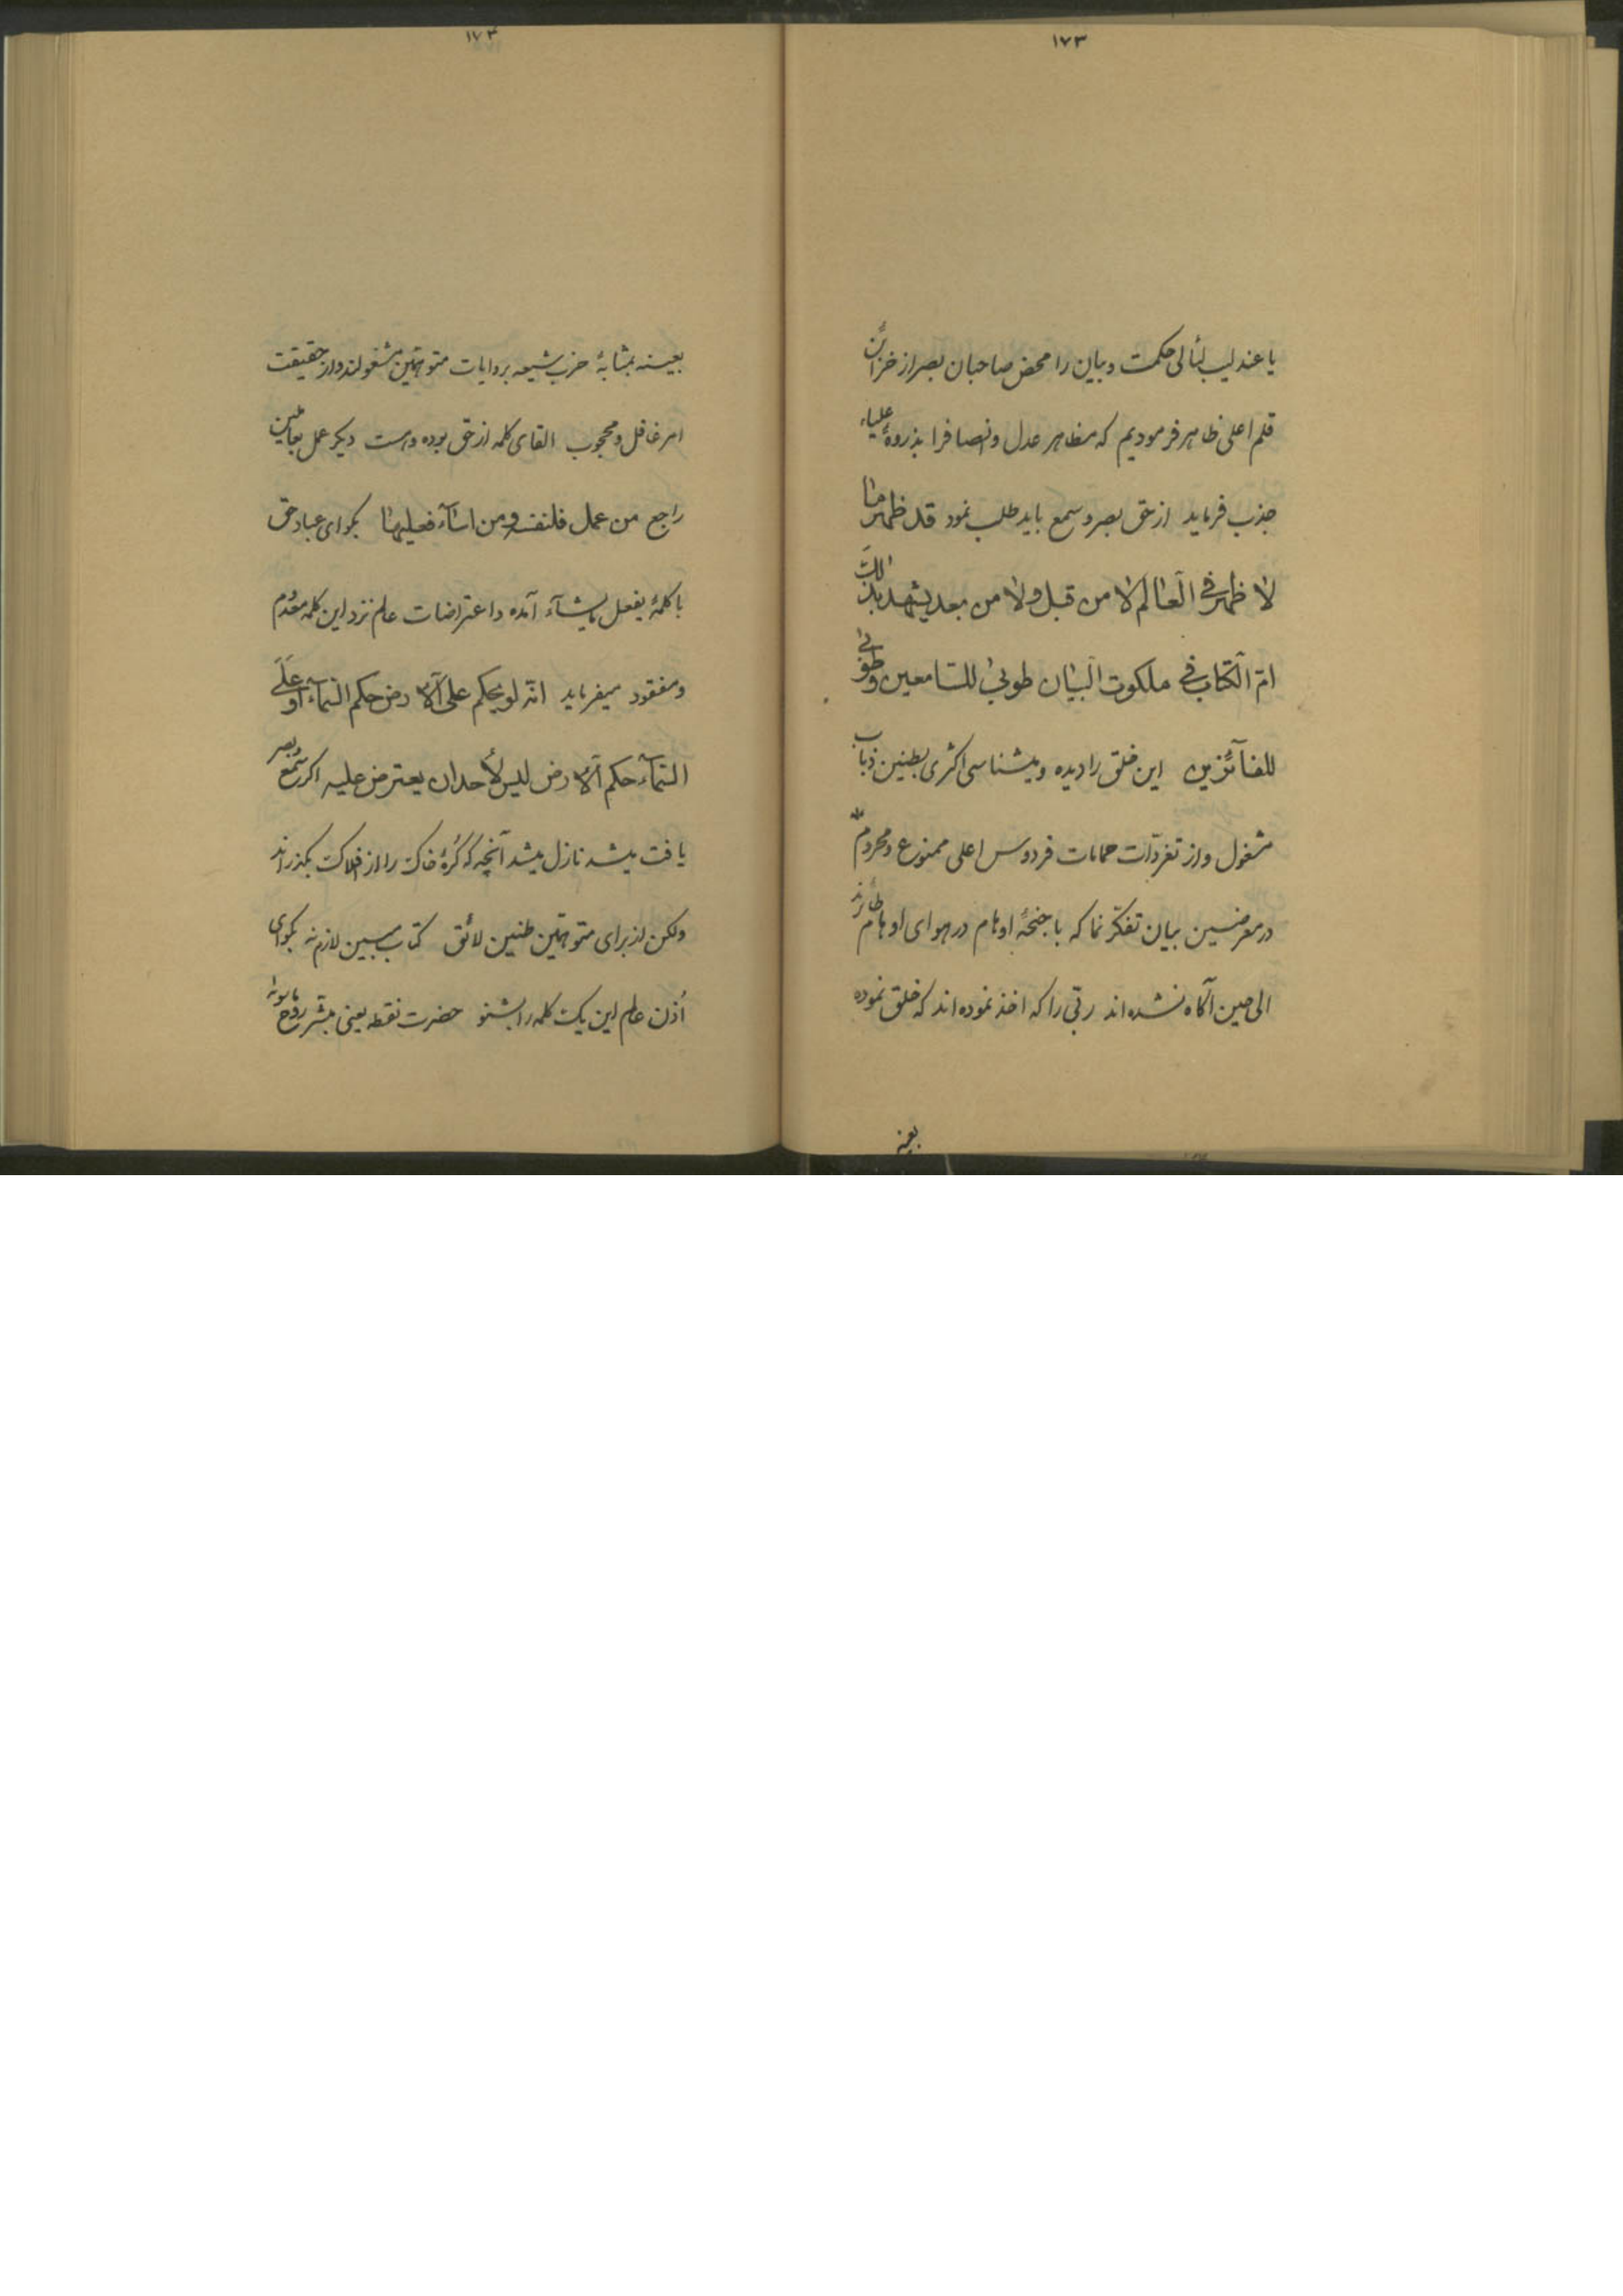 ۱۷۳
یا عندلیب لئالی حکمت و بیان را محض صاحبان بصر از خزائن
قلم اعلی ظاهر فرمودیم که مظاهر عدل و انصافرا بذروهٔ علیاء
جذب فرماید از حق بصر و سمع باید طلب نمود قد ظهر منا
لا ظهر فی العالم لا من قبل و لا من بعد یشهد بذلک
امّ الکتاب فی ملکوت البیان طوبی للسّامعین و طوبی
للفآئزین این خلق را دیده و میشناسی اکثری بطنین ذباب
مشغول و از تغردّات حمامات فردوس اعلی ممنوع و محروم
در معرضین بیان تفکّر نما که باجنحهٔ اوهام در هوای اوهام طائرند
الی حین آگاه نشده اند ربّی را که اخذ نموده اند که خلق نموده
بعینه
۱۷۴
بعینه بمثابهٔ حزب شیعه بروایات متوهّمین مشغولند و از حقیقت
امر غافل و محجوب القای کلمه از حق بوده و هست دیگر عمل بعاملین
راجع من عمل فلنفسه و من اسآء فعلیها بگو ای عباد حق
با کلمهٔ یفعل ما یشآء آمده و اعتراضات عالم نزد این کلمه معدوم
و مفقود میفرماید انّه لو یحکم علی الارض حکم السّمآء او علی
السّمآء حکم الارض لیس لأحد ان یعترض علیه اکر سمع و بصر
یافت میشد نازل میشد آنچه که کُرهٔ خاک را از افلاک بگذراند
ولکن از برای متوهّمین طنین لائق کتاب مبین لازم نه بگو ای
اُذن عالم این یک کلمه را بشنو حضرت نقطه یعنی مبشّر روح ما سواه